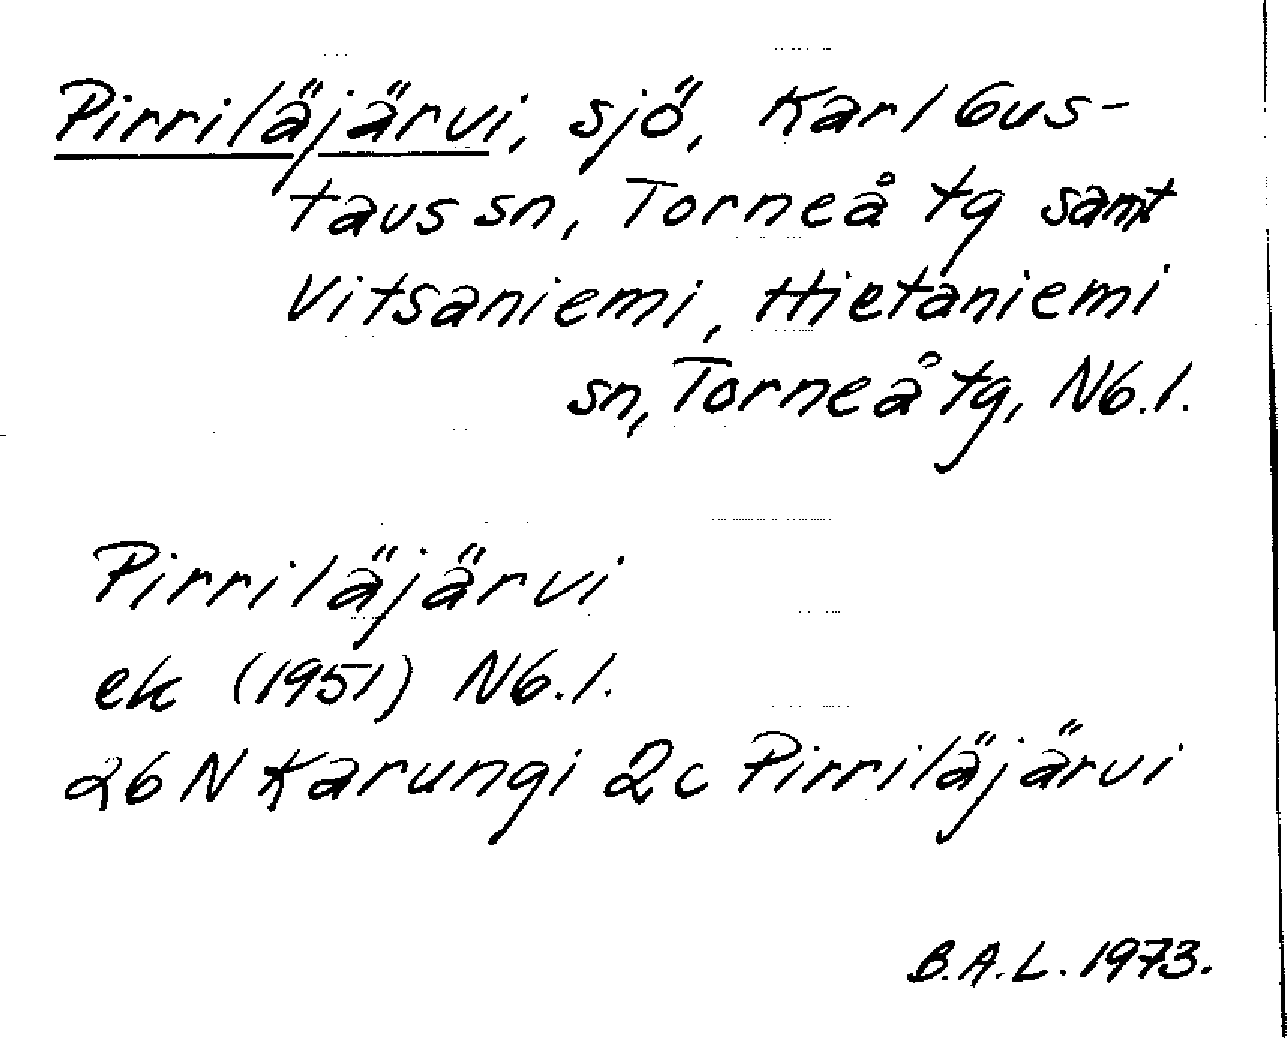 Pirriläjärvi, sjö, Karl Gus-
tavs sn, Torneå tg samt
Vitsaniemi, Hietaniemi
sn, Torneå tg, Nb.l.
Pirriläjärvi
ek (1951) Nb.l.
26 N Karungi 2c Pirriläjärvi
B.A.L. 1973.